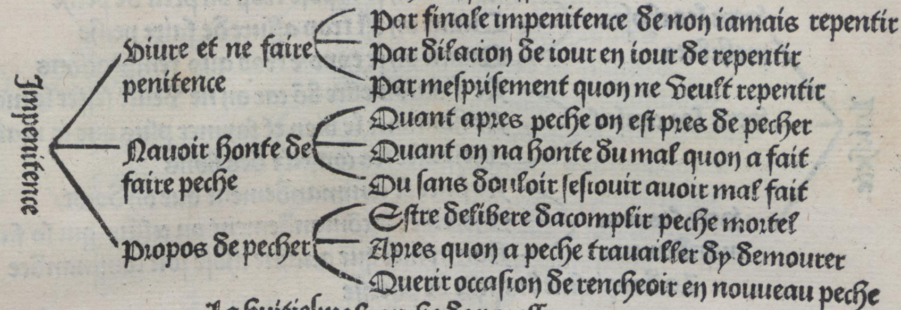 Impenitence
Viure et ne faire
penitence
Par finale impenitence de non iamais repentir
Par dilacion de iour en iour de repentir
Par mesprisement quon ne veult repentir
Nauoir honte de
faire peche
Quant apres peche on est pres de pecher
Quant on na honte du mal quon a fait
Ou sans douloir sesiouir auoir mal fait
Propos de pecher
Estre delibere dacomplir peche mortel
Apres quon a peche trauailler dy demourer
Querir occasion de rencheoir en nouueau peche